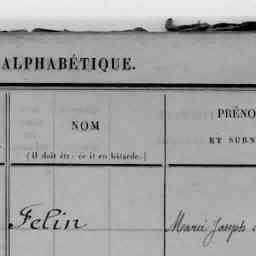 ALPHABÉTIQUE.
NOM
(Il doit êtr: éc it en bâtarde.)
PRÉNO
ET SURN
Felin
Marie Joseph